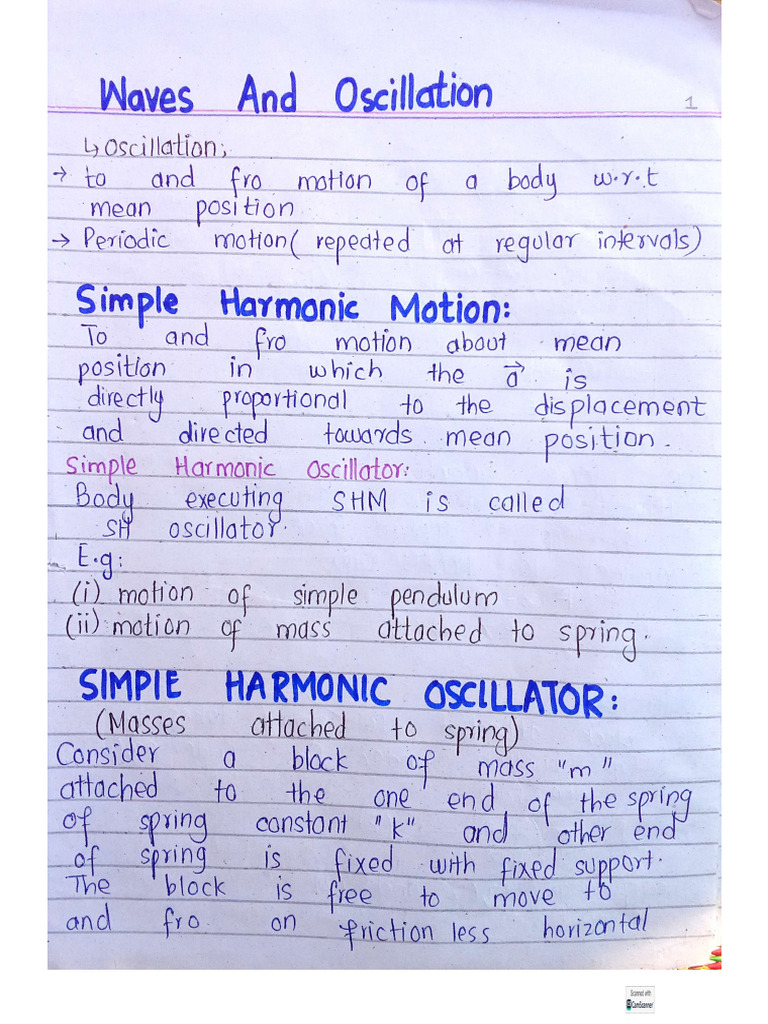 Waves And Oscillation
1
↳ Oscillation;
→ to and fro motion of a body w.r.t
mean position
→ Periodic motion( repeated at regular intervals)
Simple Harmonic Motion:
To and fro motion about mean
position in which the a⃗ is
directly proportional to the displacement
and directed towards mean position.
Simple Harmonic Oscillator:
Body executing SHM is called
SH oscillator.
E.g:
(i) motion of simple pendulum
(ii) motion of mass attached to spring.
SIMPLE HARMONIC OSCILLATOR:
(Masses attached to spring)
Consider a block of mass "m"
attached to the one end of the spring
of spring constant "k" and other end
of spring is fixed with fixed support.
The block is free to move to
and fro on friction less horizontal
Scanned with
CamScanner